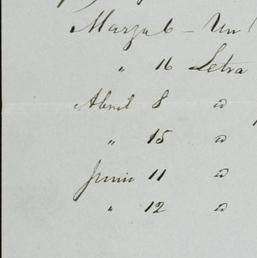 Marzo 6 - Un
" 16 Letra
Abril 8 "
" 15 "
Junio 11 "
" 12 "